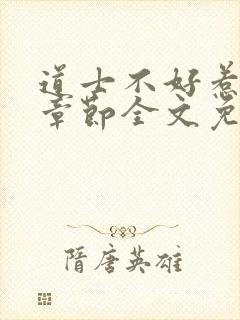 道士不好惹
章節全文免
隋唐英雄